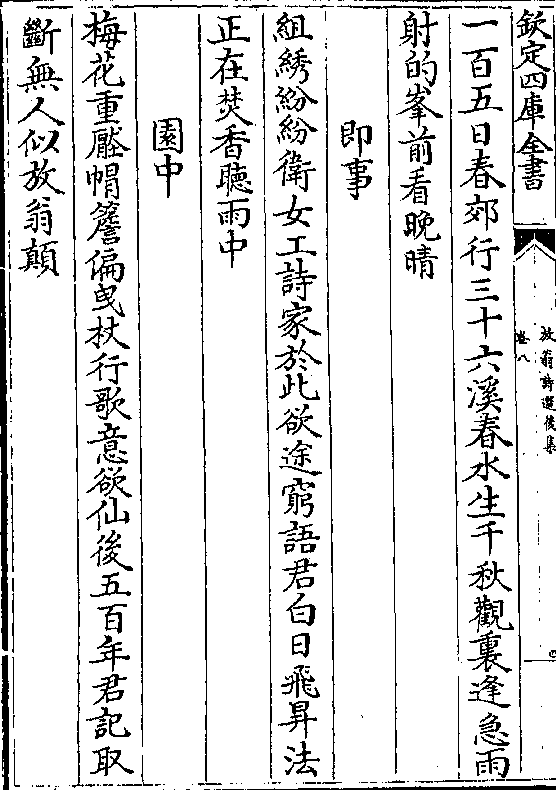 欽定四庫全書
放翁詩選後集
卷八
一百五日春郊行三十六溪春水生千秋觀裏逢急雨
射的峯前看晚晴
即事
組綉紛紛衒女工詩家於此欲途窮語君白日飛昇法
正在焚香聽雨中
園中
梅花重壓帽簷偏曳杖行歌意欲仙後五百年君記取
斷無人似放翁顛